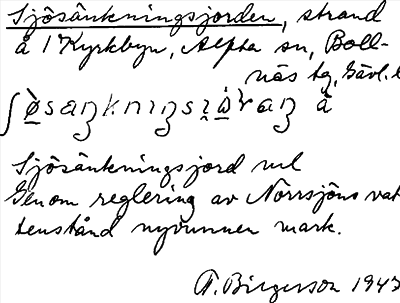 Sjösänkningsjorden, strand
å 1 Kyrkbyn, Alfta sn, Boll-
näs tg, Gävl. l
å
Sjösänkningsjord ml
Genom reglering av Norrsjöns vat
tenstånd nyvunnen mark.
F. Birgerson 1947